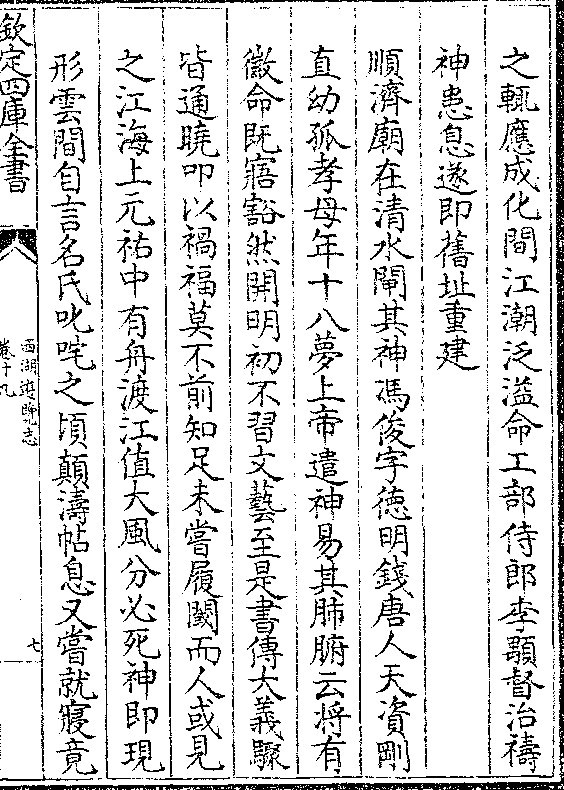 之輒應成化間江潮泛溢命工部侍郎李顒督治禱
神患息遂即舊址重建
順濟廟在清水閘其神馮俊字德明錢唐人天資剛
直幼孤孝母年十八夢上帝遣神易其肺腑云將有
徽命既寤豁然開明初不習文藝至是書傳大義驟
皆通曉叩以禍福莫不前知足未嘗履閾而人或見
之江海上元祐中有舟渡江值大風分必死神即現
形雲間自言名氏叱咤之頃顛濤帖息又嘗就寢竟
欽定四庫全書
西湖遊覽志
卷十九
七